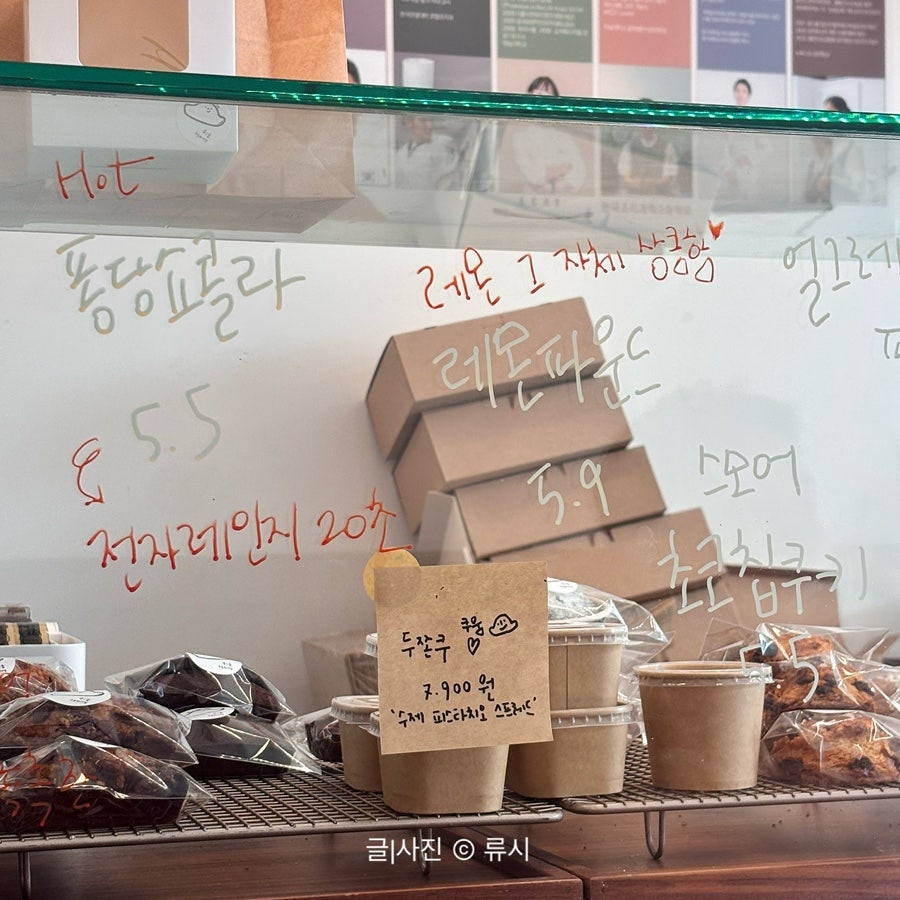 Hot
퐁당쇼콜라
5.5
전자레인지 20초
레몬 그 자체 상큼함
레몬파운드
5.9
얼그레이
스모어
초코칩쿠키
5.5
두쫀쿠 쿠움
7.900원
'수제 피스타치오 스프레드'
글|사진 © 류시